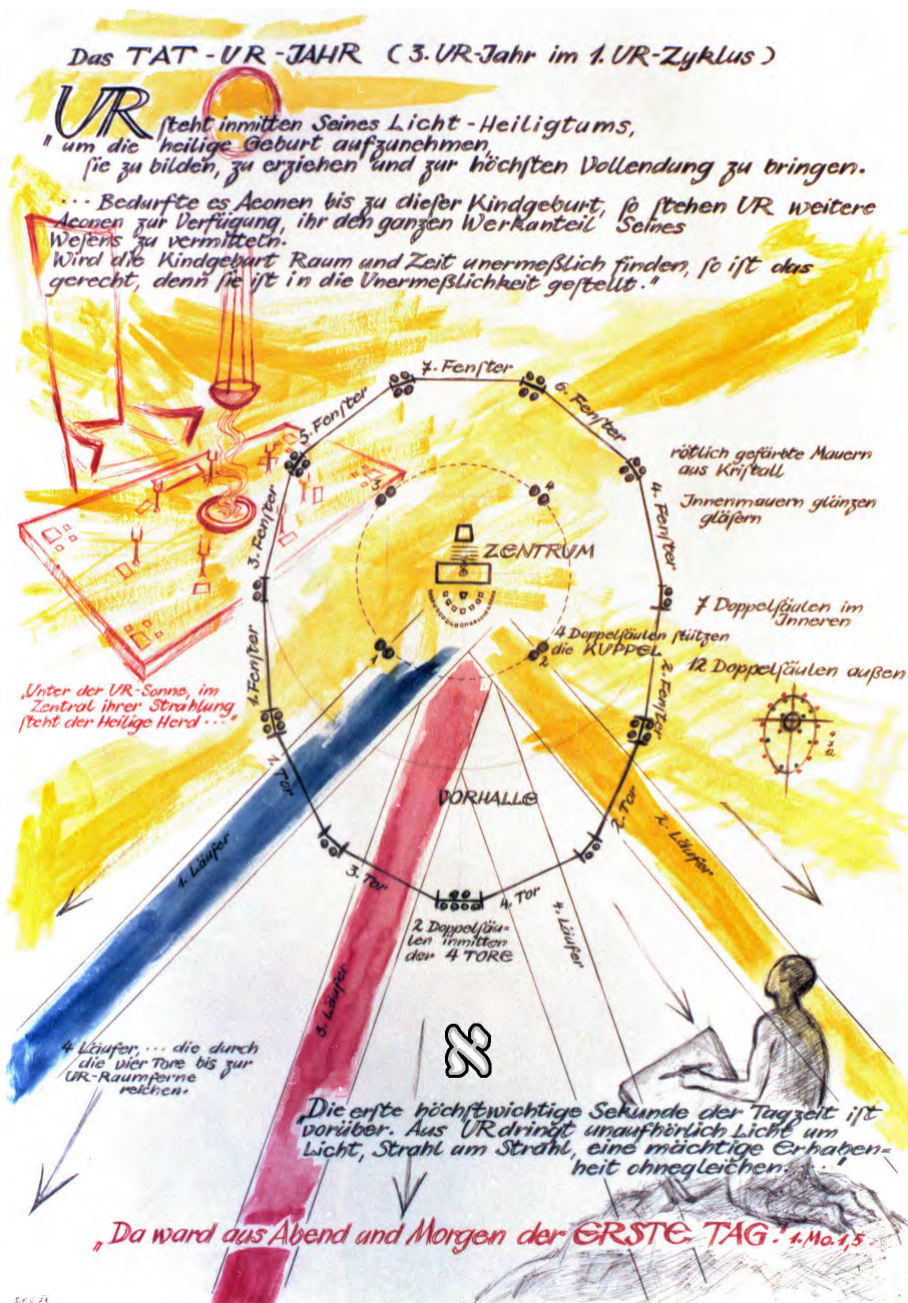 Das TAT-UR-JAHR (3. UR-Jahr im 1. UR-Zyklus)
UR ſteht inmitten Seines Licht-Heiligtums,
"um die heilige Geburt aufzunehmen,
ſie zu bilden, zu erziehen und zur höchſten Vollendung zu bringen.
... Bedurfte es Aeonen bis zu dieſer Kindgeburt, ſo ſtehen UR weitere
Aeonen zur Verfügung, ihr den ganzen Werkanteil Seines
Weſens zu vermitteln.
Wird die Kindgeburt Raum und Zeit unermeßlich finden, ſo iſt das
gerecht, denn ſie iſt in die Unermeßlichkeit geſtellt."
7. Fenſter
5. Fenſter
6. Fenſter
3. Fenſter
4. Fenſter
rötlich gefärbte Mauern
aus Kriſtall
Innenmauern glänzen
gläſern
3
4
ZENTRUM
7 Doppelſäulen im
Inneren
1
2
4 Doppelſäulen ſtützen
die KUPPEL
12 Doppelſäulen außen
1. Fenſter
2. Fenſter
"Unter der UR-Sonne, im
Zentral ihrer Strahlung
ſteht der Heilige Herd ..."
1. Tor
2. Tor
VORHALLE
3. Tor
4. Tor
1. Läufer
2. Läufer
3. Läufer
4. Läufer
2 Doppelſäu-
len inmitten
der 4 TORE
4 Läufer, ... die durch
die vier Tore bis zur
UR-Raumferne
reichen.
א
"Die erſte höchſtwichtige Sekunde der Tagzeit iſt
vorüber. Aus UR dringt unaufhörlich Licht um
Licht, Strahl um Strahl, eine mächtige Erhaben=
heit ohnegleichen. ..."
"Da ward aus Abend und Morgen der ERSTE TAG!" 1. Mo. 1,5